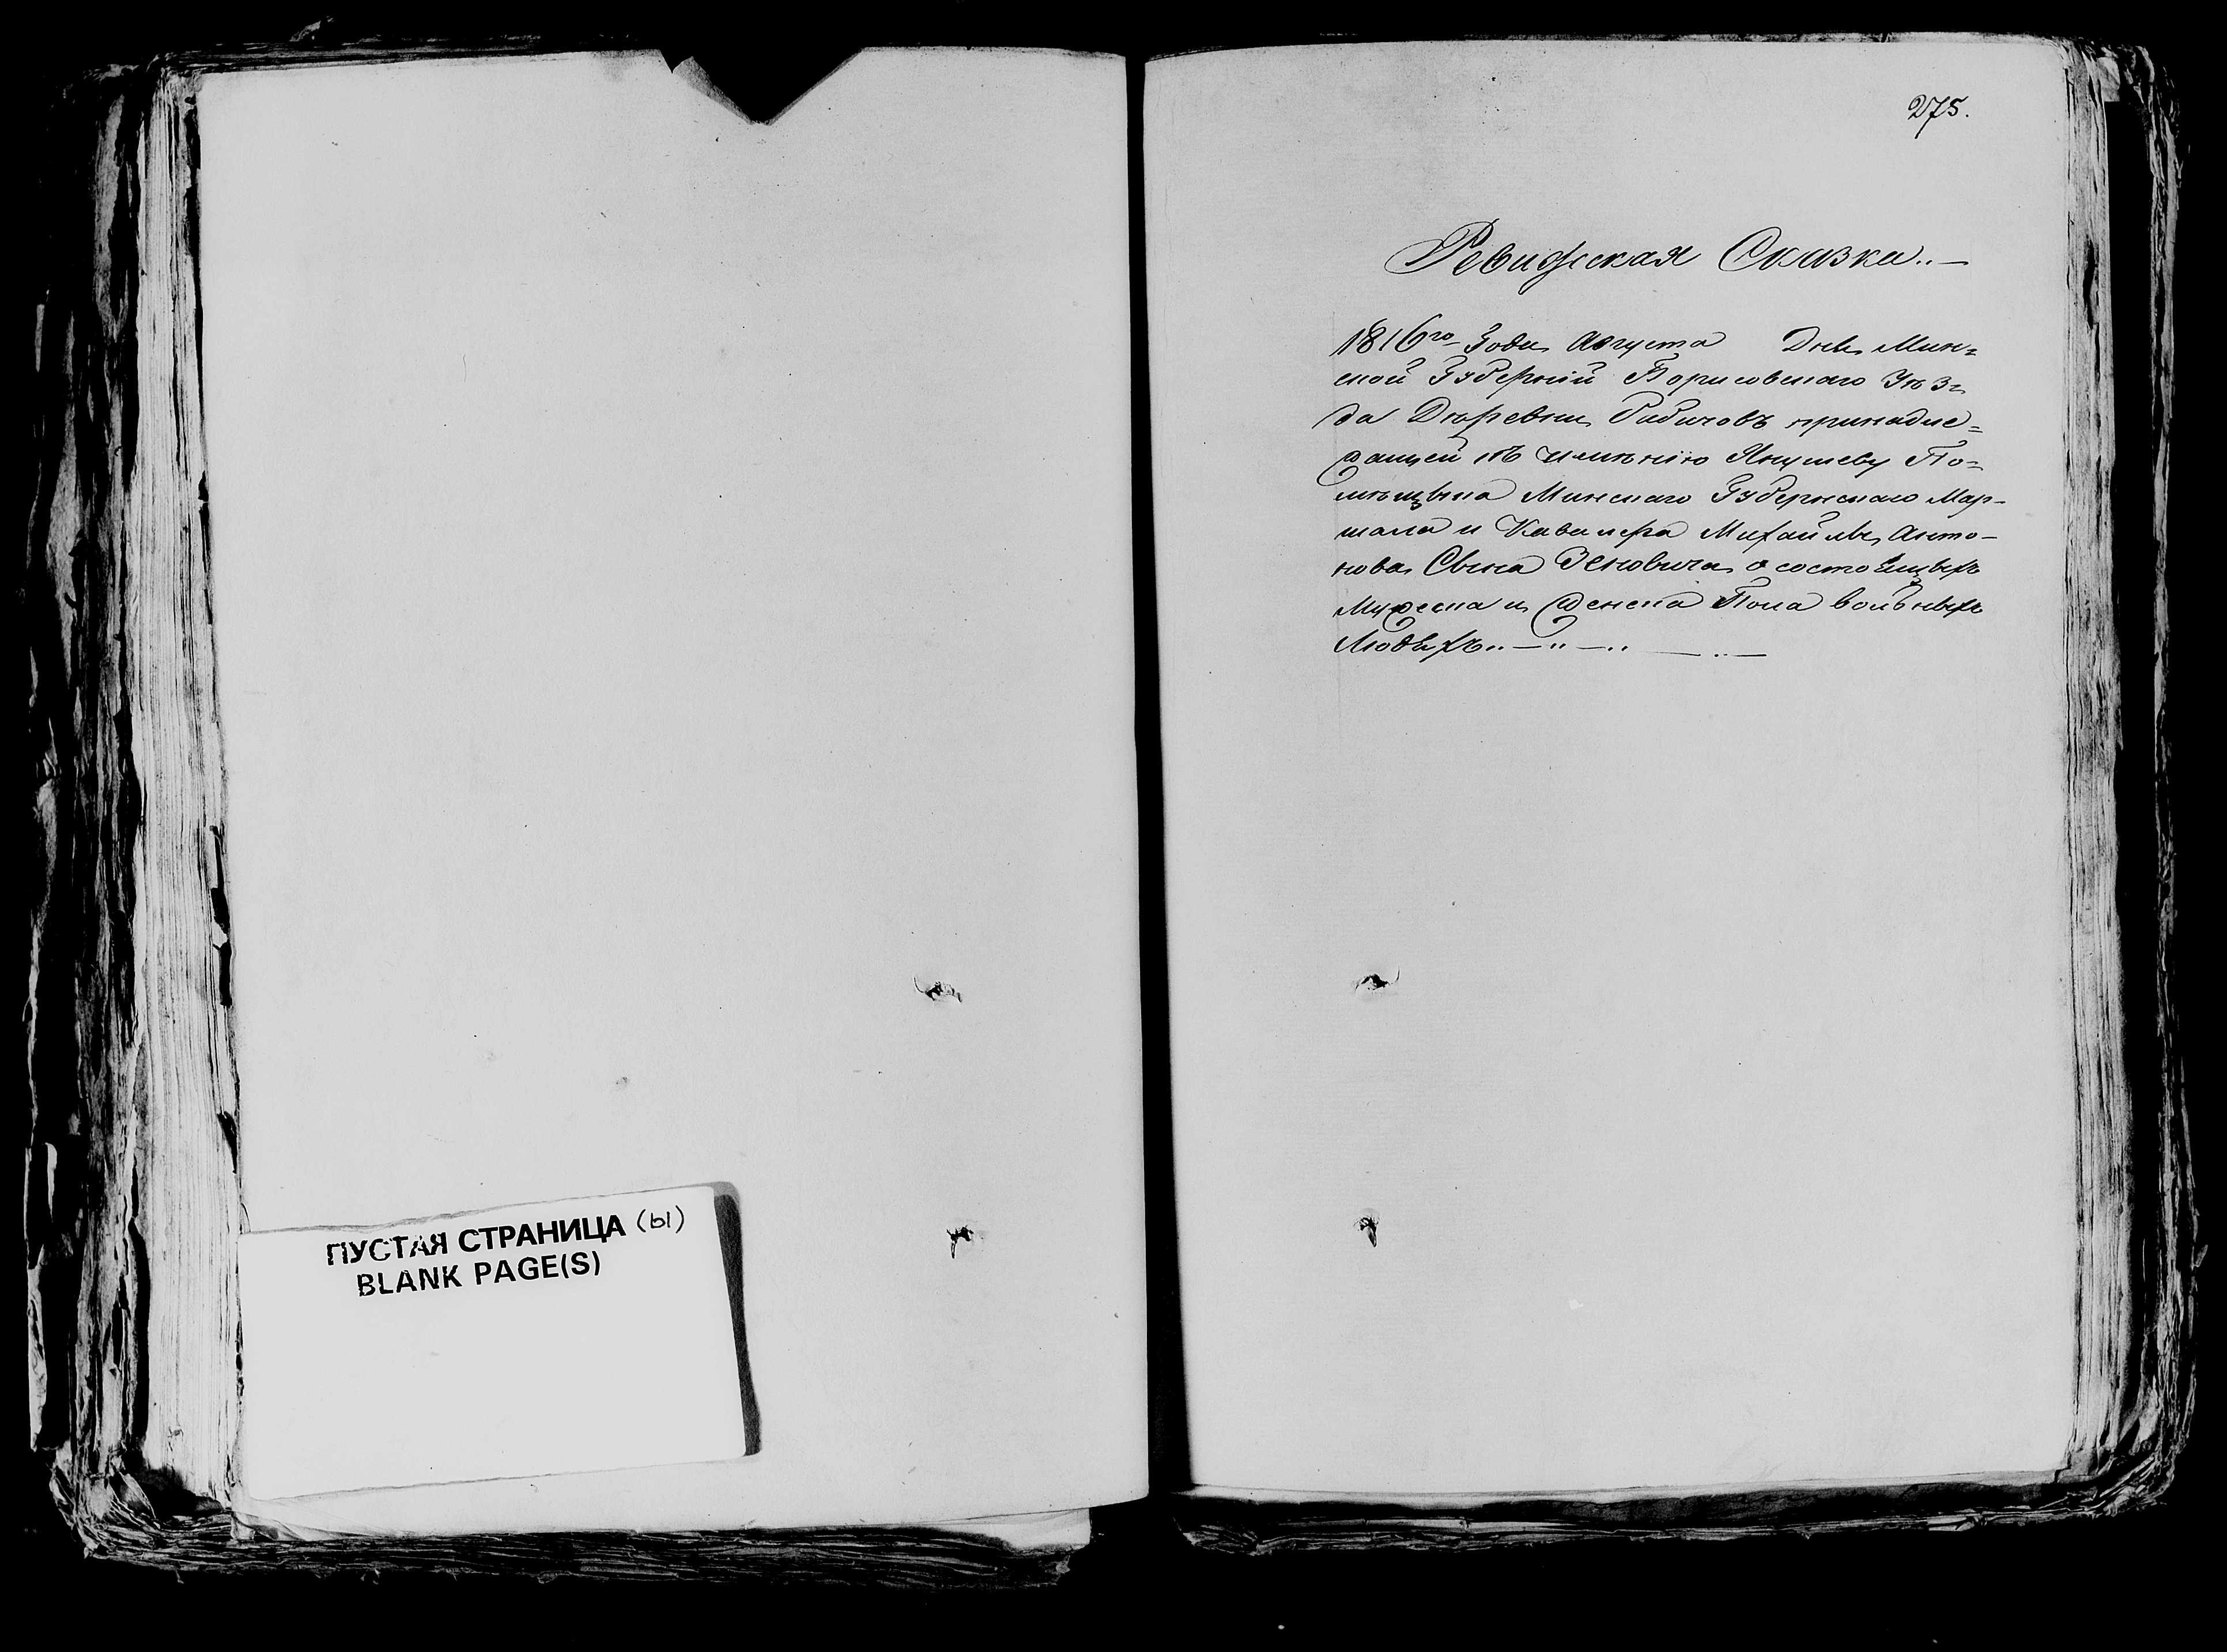 ПУСТАЯ СТРАНИЦА (ы)
BLANK PAGE(S)
275.
Ревижская Сказка..—
1816го Года Августа Дня Мин=
ской Губерніи Борисовскаго Уѣз=
да Деревни принадле=
жащей къ имѣнію Янушеву По=
мѣщыка Минскаго Губернскаго Мар-
шала и Кавалера Михайлы Анто-
нова Сына Зеновича о состоящыхъ
Мужеска и Женска Пола вольныхъ
Людѣхъ..—..—.. —..—